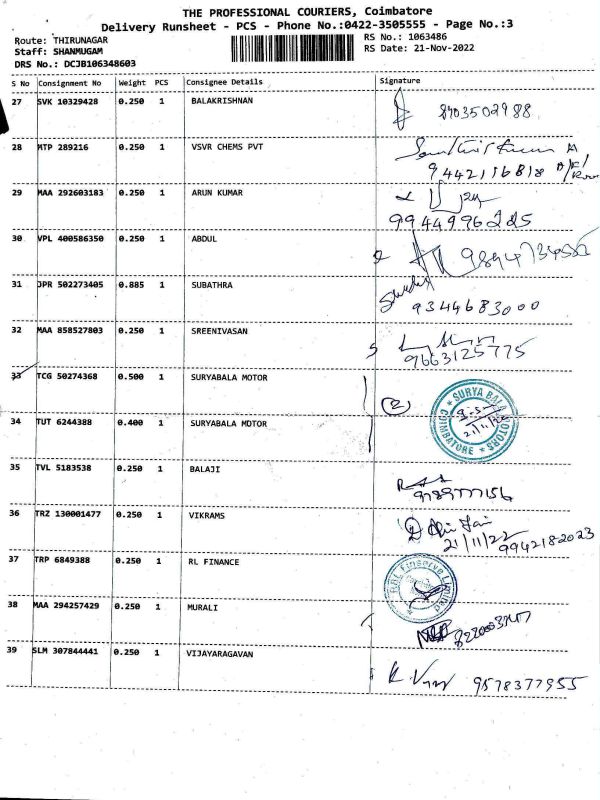 THE PROFESSIONAL COURIERS, Coimbatore
Delivery Runsheet - PCS - Phone No.:0422-3505555 - Page No.:3
Route: THIRUNAGAR RS No.: 1063486
Staff: SHANMUGAM RS Date: 21-Nov-2022
DRS No.: DCJB106348603
S No Consignment No Weight PCS Consignee Details Signature
27 SVK 10329428 0.250 1 BALAKRISHNAN 8903502988
28 MTP 289216 0.250 1 VSVR CHEMS PVT
9442116818
29 MAA 292603183 0.250 1 ARUN KUMAR
9944996225
30 VPL 400586350 0.250 1 ABDUL
31 JPR 502273405 0.885 1 SUBATHRA
9344683000
32 MAA 858527803 0.250 1 SREENIVASAN
9663125775
33 TCG 50274368 0.500 1 SURYABALA MOTOR
2
SURYA BALA MOTORS COIMBATORE
21/11/22
34 TUT 6244388 0.400 1 SURYABALA MOTOR
35 TVL 5183538 0.250 1 BALAJI
9789777156
36 TRZ 130001477 0.250 1 VIKRAMS
21/11/22 9942182023
37 TRP 6849388 0.250 1 RL FINANCE
Finserve Limited
38 MAA 294257429 0.250 1 MURALI
39 SLM 307844441 0.250 1 VIJAYARAGAVAN
9578377955